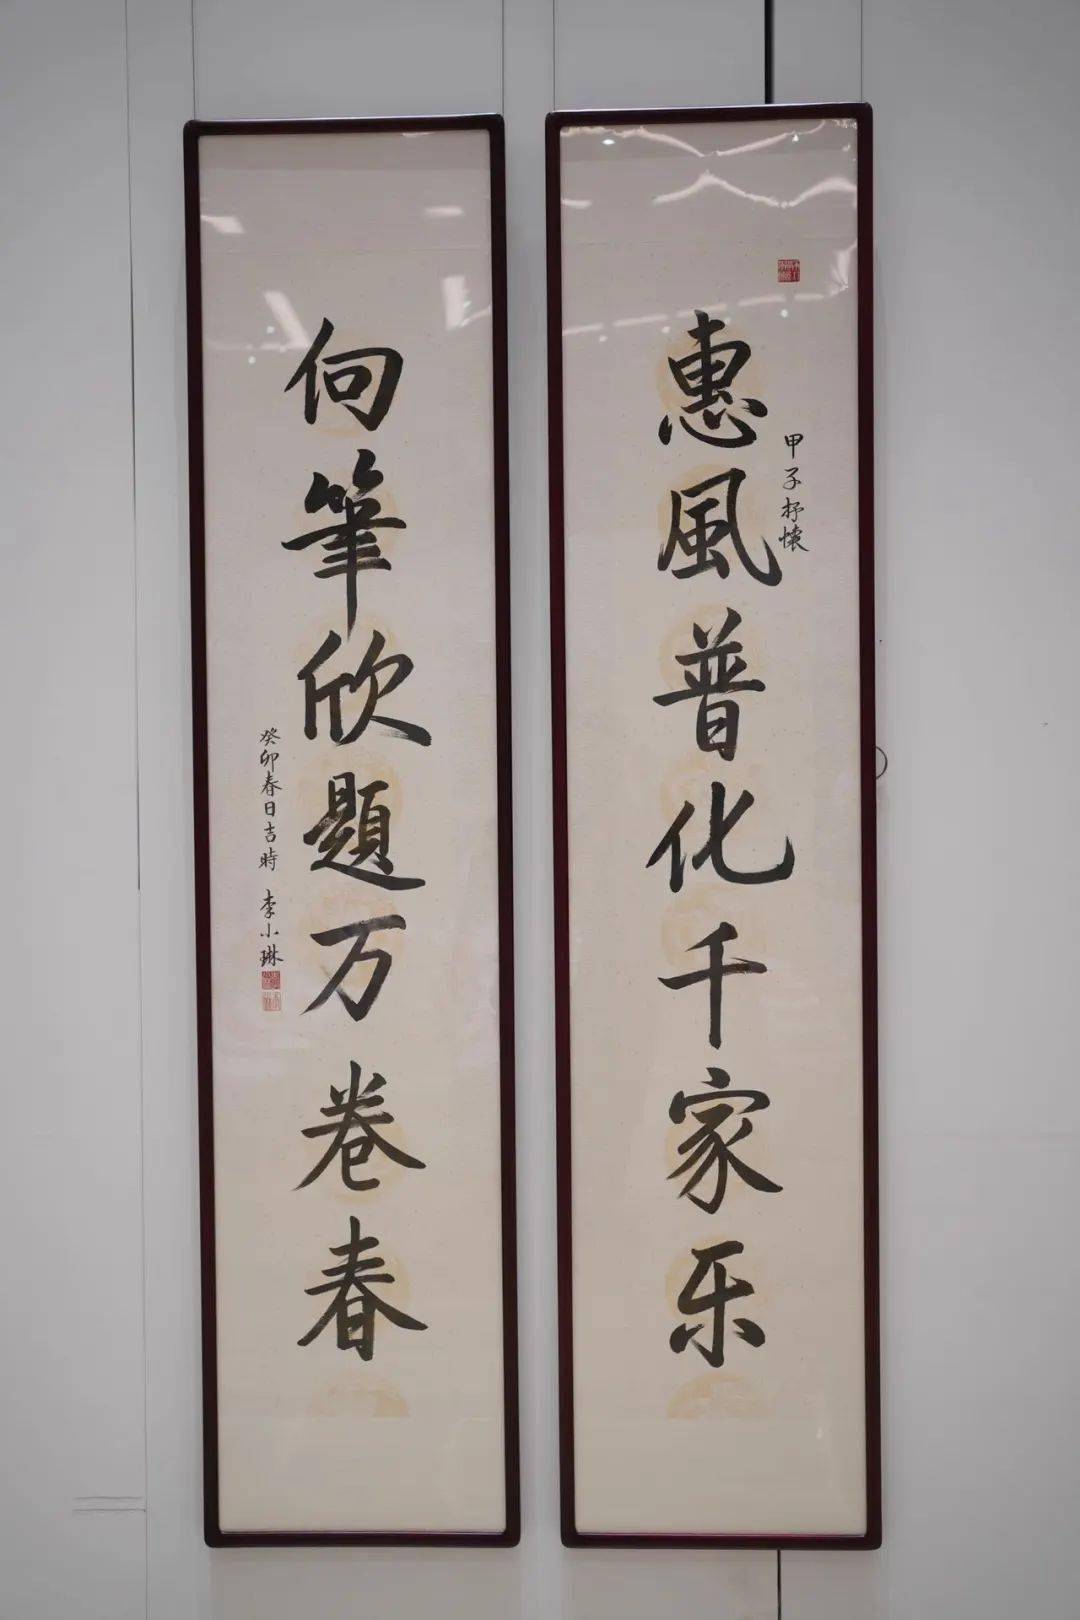 惠風普化千家乐
甲子抒懷
向筆欣題万卷春
癸卯春日吉時 李小琳